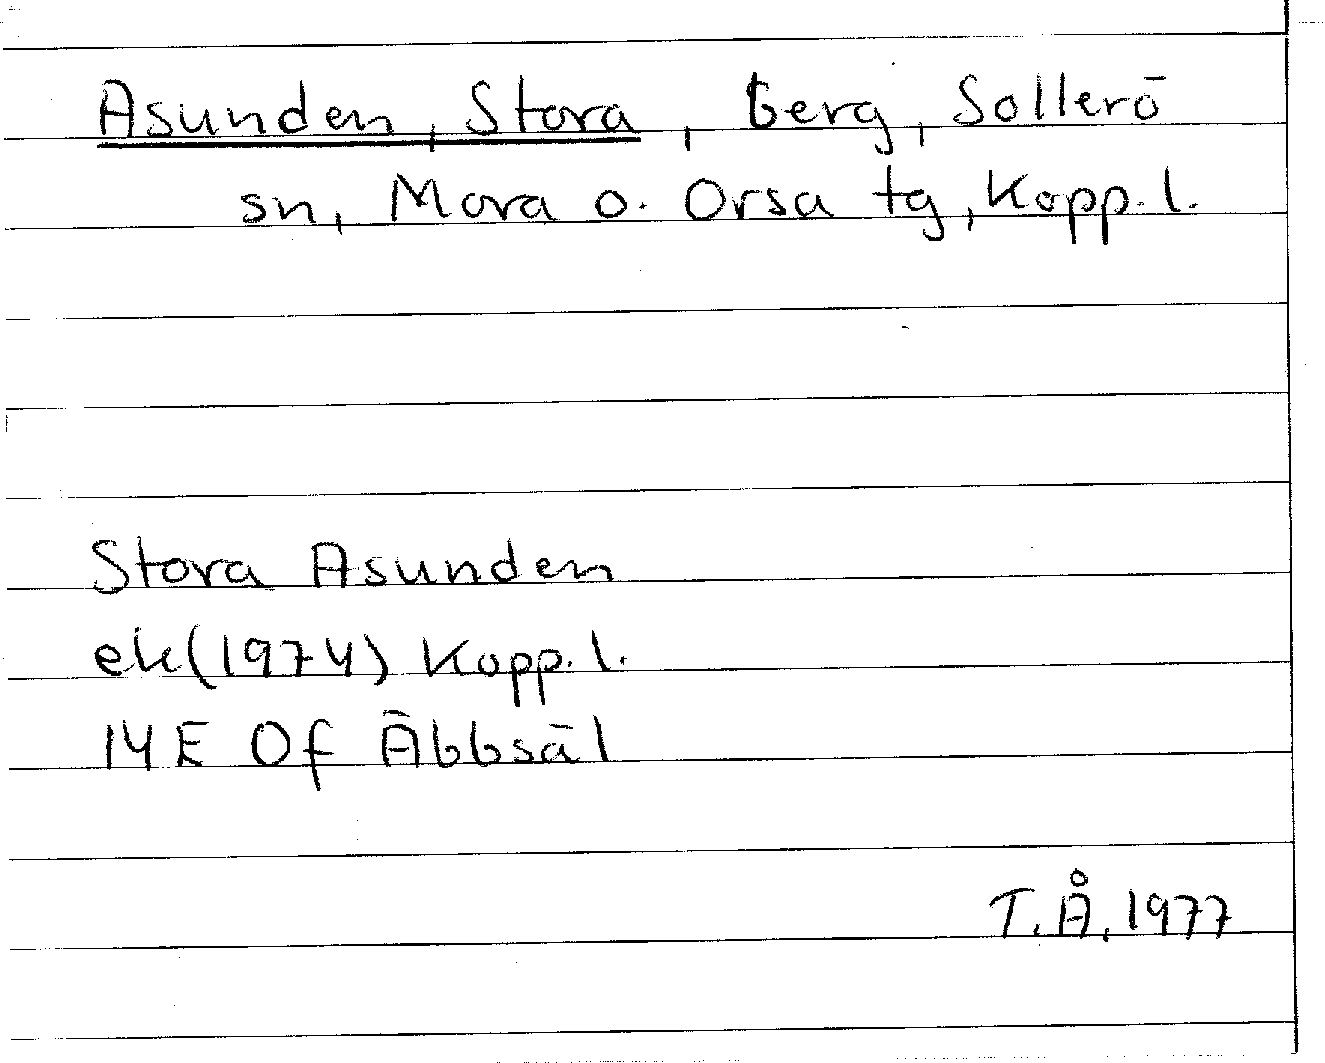 Asunden, Stora, berg, Sollerö
sn, Mora o. Orsa tg, Kopp. l.
Stora Asunden
ek(1974) Kopp. l.
14E 0f Äbbsäl
T.Å. 1977